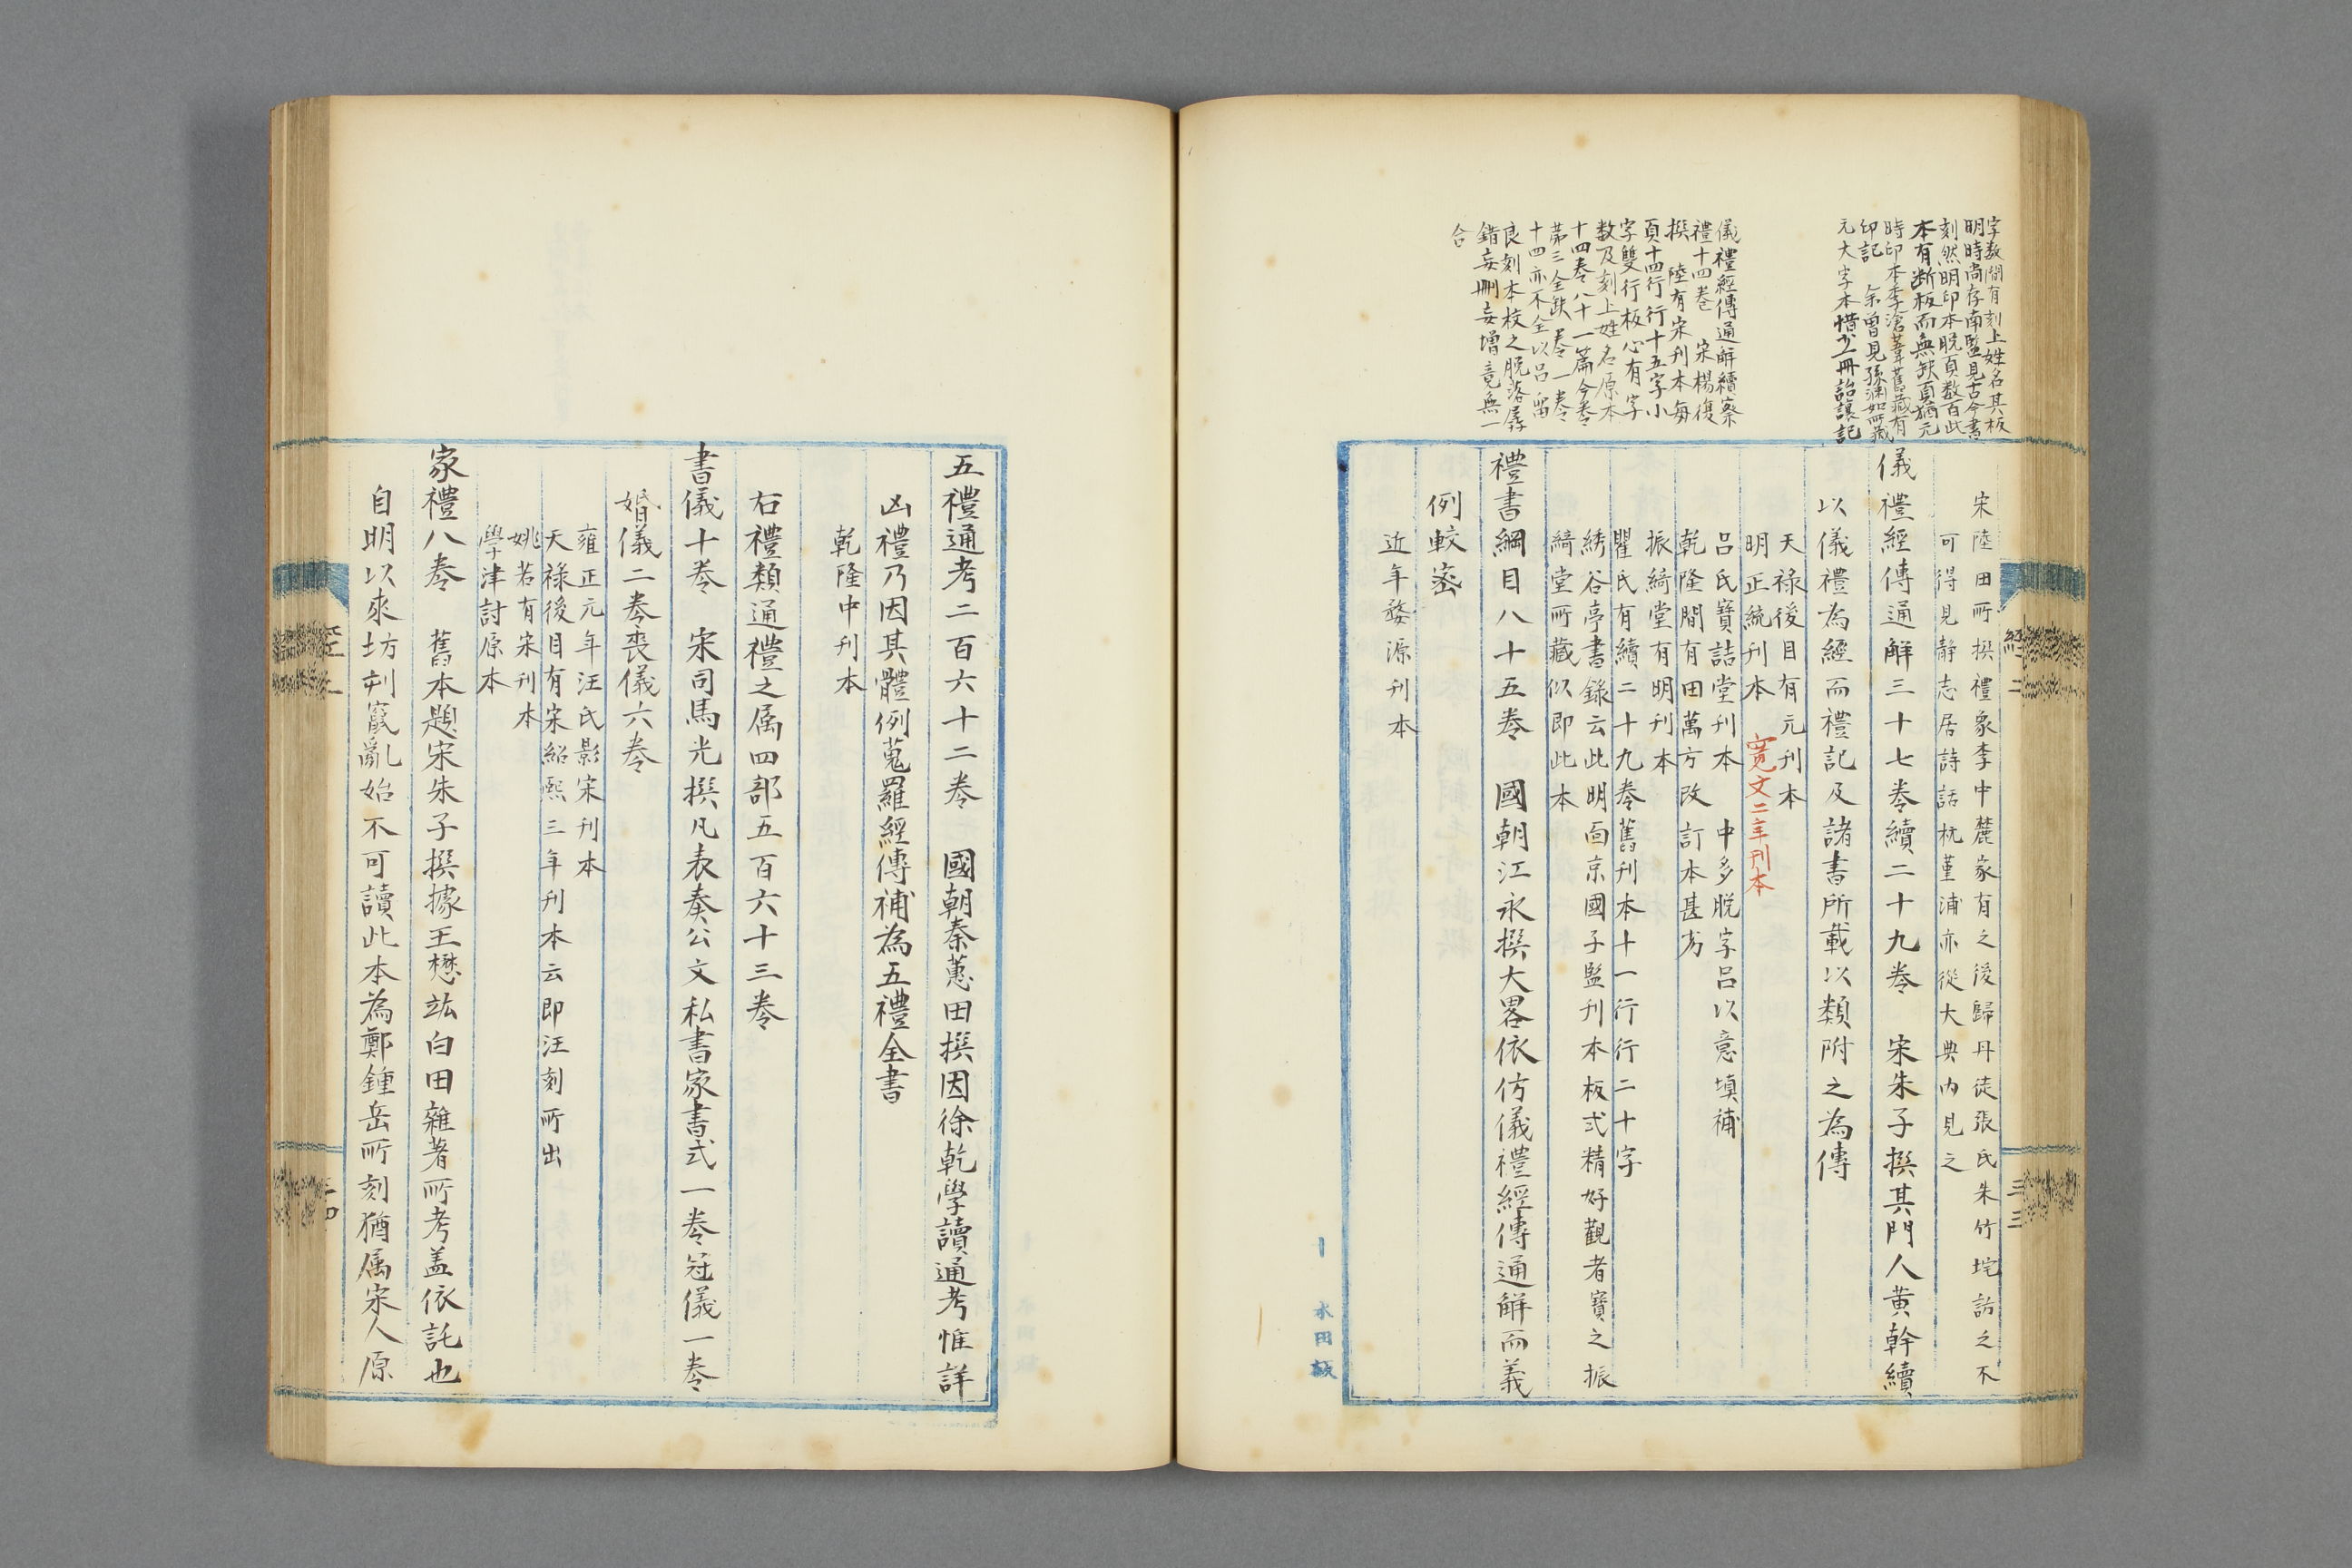 字数間有刻上姓名其板
明時尚存南監見古今書
刻然明印本脱頁数百此
本有断板而無缺頁猶元
時印本季滄葦舊藏有
印記 余曽見孫渊如所藏
元大字本惜少二冊詒讓記
儀禮經傳通解續祭
禮十四卷 宋楊復
撰 陸有宋刊本每
頁十四行行十五字小
字雙行板心有字
数及刻上姓名原本
十四卷八十一篇今卷
苐三全缺 卷一卷
十四亦不全以吕留
良刻本校之脱落孱
錯妄刪妄增竟無一
合
宋陸田所撰禮象李中麓家有之後歸丹徒張氏朱竹垞訪之不
可得見静志居詩話杭堇浦亦從大典内見之
儀禮經傳通解三十七卷續二十九卷 宋朱子撰其門人黄幹續
以儀禮為經而禮記及諸書所載以類附之為傳
天禄後目有元刊本
明正統刊本 寛文二年刊本
吕氏寶誥堂刊本 中多脱字吕以意填補
乾隆間有田萬方改訂本甚劣
振綺堂有明刊本
瞿氏有續二十九卷舊刊本十一行行二十字
綉谷亭書錄云此明靣京國子監刊本板式精好觀者寶之振
綺堂所藏似即此本
禮書綱目八十五卷 國朝江永撰大畧依仿儀禮經傳通解而義
例較宻
近年婺源刊本
經二
三三
水田版
五禮通考二百六十二卷 國朝秦蕙田撰因徐乾學讀通考惟詳
凶禮乃因其體例蒐羅經傳補為五禮全書
乾隆中刊本
右禮類通禮之属四部五百六十三卷
書儀十卷 宋司馬光撰凡表奏公文私書家書式一卷冠儀一卷
婚儀二卷喪儀六卷
雍正元年汪氏影宋刊本
天禄後目有宋紹熙三年刊本云即汪刻所出
姚若有宋刊本
學津討原本
家禮八卷 舊本題宋朱子撰據王懋竑白田雜著所考盖依託也
自明以來坊刋竄亂始不可讀此本為鄭鍾岳所刻猶属宋人原